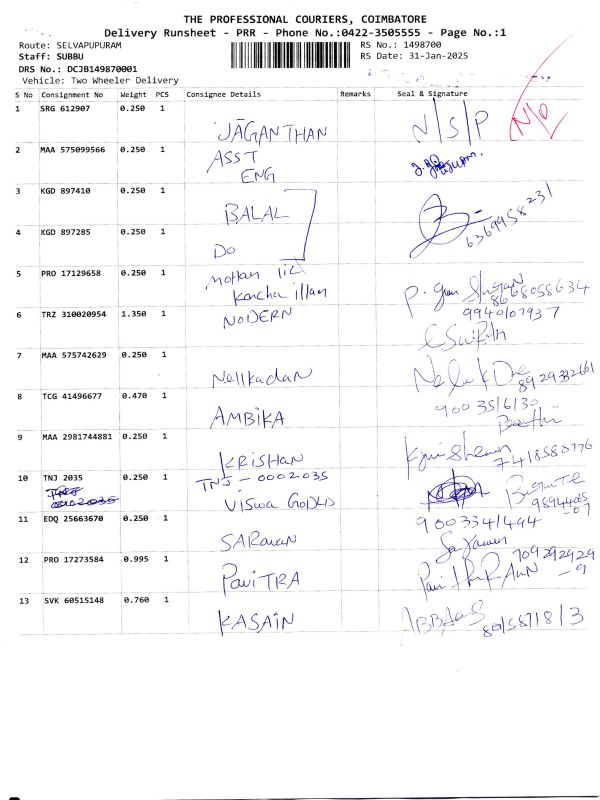 THE PROFESSIONAL COURIERS, COIMBATORE
Delivery Runsheet - PRR - Phone No.:0422-3505555 - Page No.:1
Route: SELVAPUPURAM RS No.: 1498700
Staff: SUBBU RS Date: 31-Jan-2025
DRS No.: DCJB149870001
Vehicle: Two Wheeler Delivery
S No Consignment No Weight PCS Consignee Details Remarks Seal & Signature
1 SRG 612907 0.250 1 JAGANTHAN N/S/P N/D
2 MAA 575099566 0.250 1 ASST
ENG
3 KGD 897410 0.250 1 BALAL 6369958231
4 KGD 897285 0.250 1 DO
5 PRO 17129658 0.250 1 mohan
Kancha illam 8668058634
6 TRZ 310020954 1.350 1 NODERN 9940107937
7 MAA 575742629 0.250 1 Nellkadan 8929332661
8 TCG 41496677 0.470 1 AMBIKA 90035/6/30
9 MAA 2981744881 0.250 1 KRISHAN 7418588776
10 TNJ 2035 0.250 1 TNJ - 0002035
0002035 Viswa GOLD
11 EDQ 25663670 0.250 1 SARavan 9003341494
12 PRO 17273584 0.995 1 PaviTRA 709292929
-9
13 SVK 60515148 0.760 1 KASAIN ABBAS